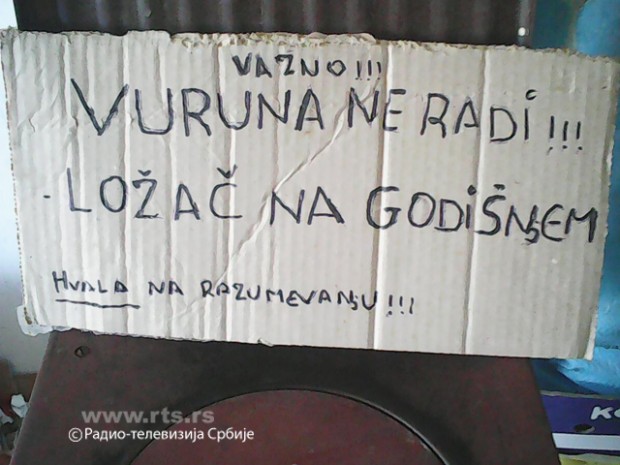 VAZNO!!!
VURUNA NE RADI!!!
- LOŽAČ NA GODIŠNJEM
HVALA NA RAZUMEVANJU!!!
www.rts.rs
©Радио-телевизија Србије